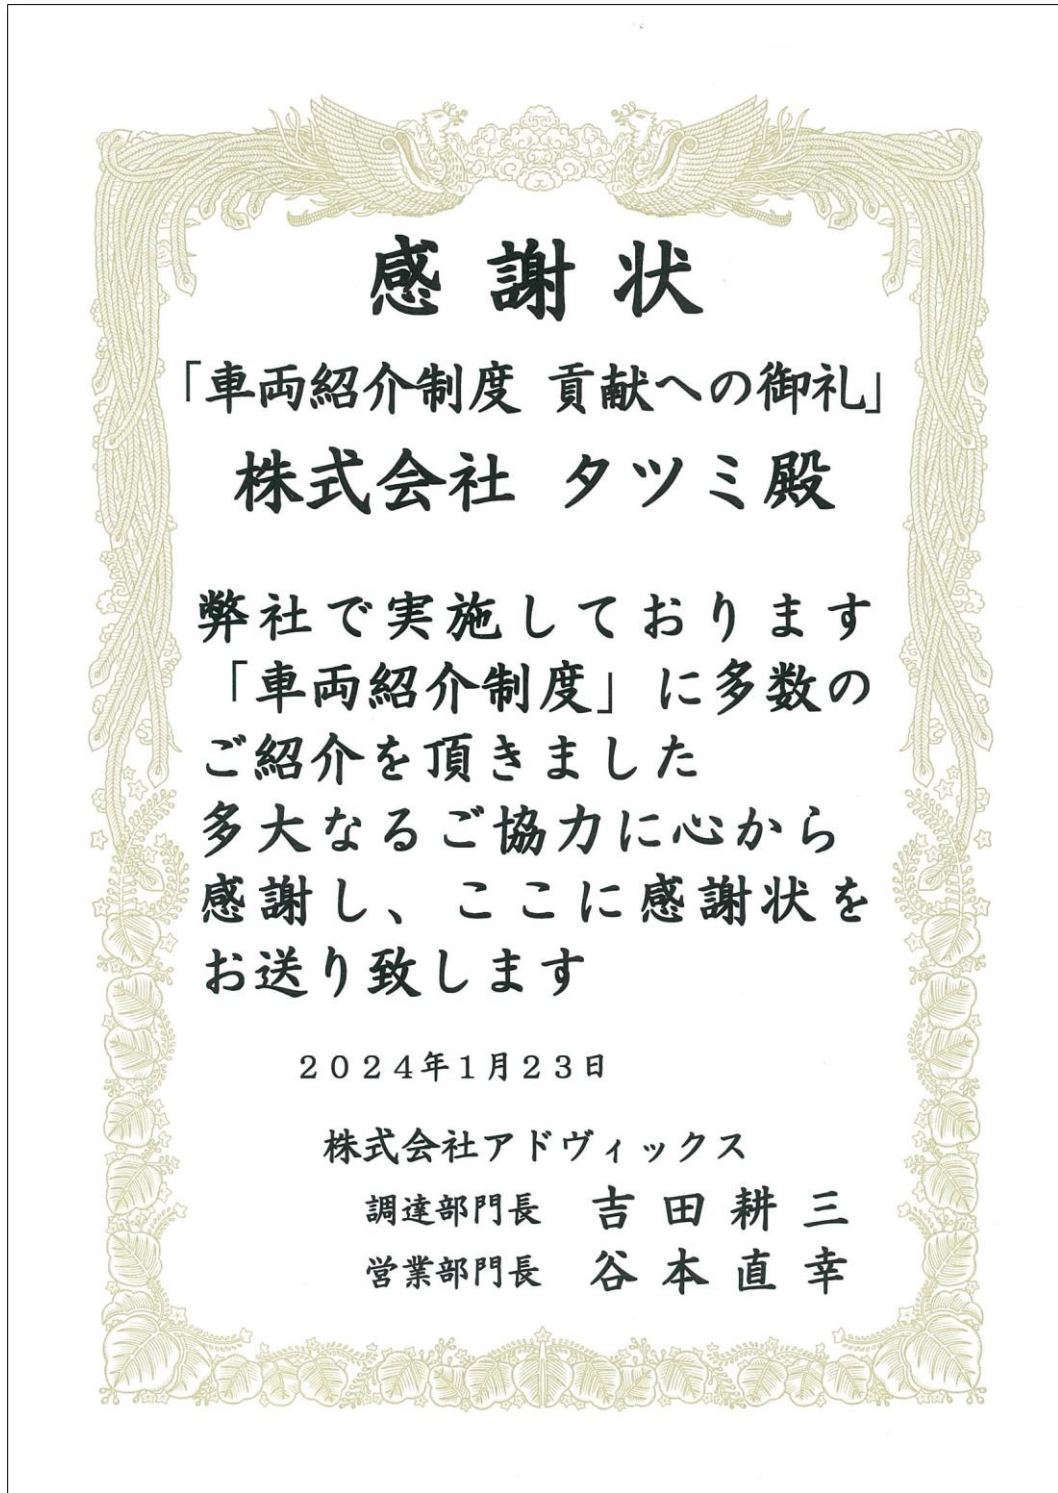 感謝状
「車両紹介制度 貢献への御礼」
株式会社 タツミ殿
弊社で実施しております
「車両紹介制度」に多数の
ご紹介を頂きました
多大なるご協力に心から
感謝し、ここに感謝状を
お送り致します
２０２４年１月２３日
株式会社アドヴィックス
調達部門長 吉田耕三
営業部門長 谷本直幸